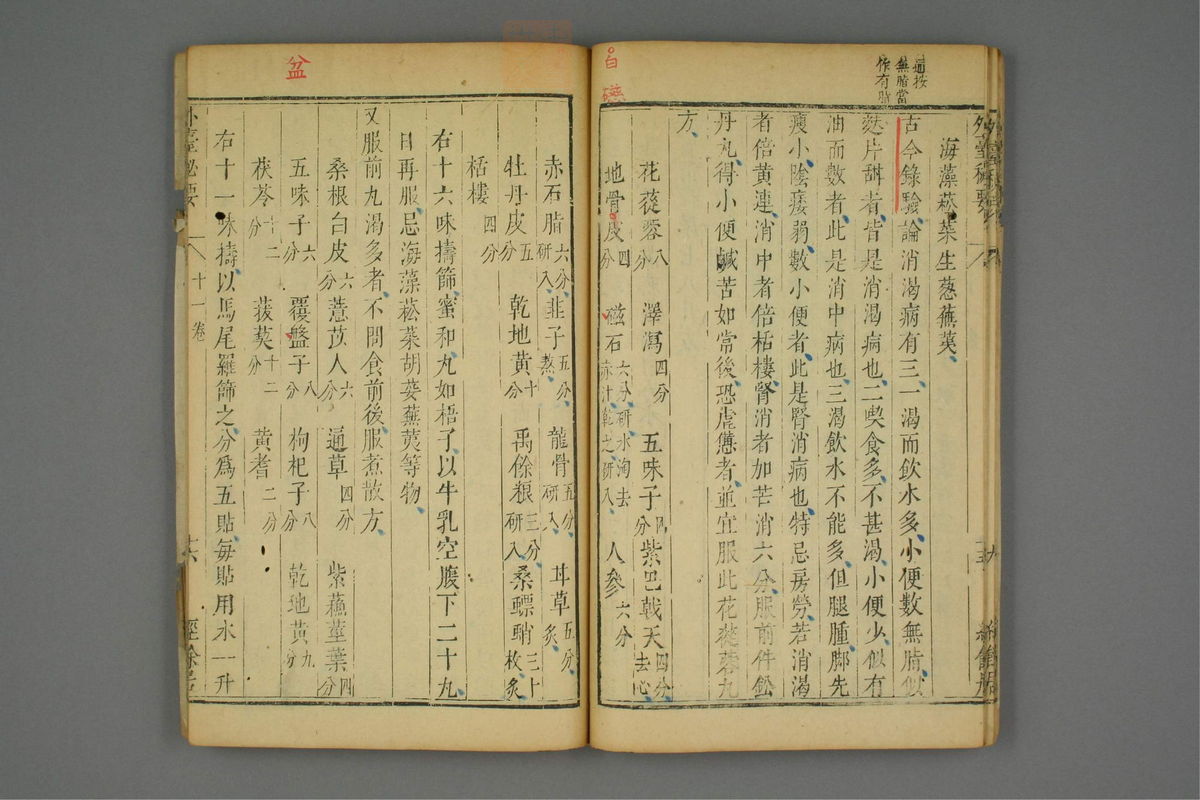 衍按
無脂當
作有脂
海藻菘菜生葱蕪荑
古今錄驗論消渴病有三一渴而飲水多小便數無脂似
麩片甜者皆是消渴病也二喫食多不甚渴小便少似有
油而數者此是消中病也三渴飲水不能多但腿腫脚先
瘦小陰痿弱數小便者此是腎消病也特忌房勞若消渴
者倍黃連消中者倍栝樓腎消者加苦消六分服前件鈆
丹丸得小便鹹苦如常後恐虛憊者並宜服此花蓯蓉丸
方
花蓯蓉八分 澤瀉四分 五味子四分 紫巴戟天四分去心
地骨皮四分 磁石六分研水淘去赤汁乾之研入 人參六分
白
礠
盆
赤石脂六分研入 韭子五分熬 龍骨五分研入 甘草五分炙
牡丹皮五分 乾地黃十分 禹餘粮三分研入 桑螵蛸三十枚炙
栝樓四分
右十六味擣篩蜜和丸如梧子以牛乳空腹下二十丸
日再服忌海藻菘菜胡荽蕪荑等物
又服前丸渴多者不問食前後服煮散方
桑根白皮六分 薏苡人六分 通草四分 紫蘓莖葉四分
五味子六分 覆盤子八分 枸杞子八分 乾地黃九分
茯苓十二分 菝葜十二分 黃耆二分
右十一味擣以馬尾羅篩之分爲五貼每貼用水一升
外臺秘要
十一卷
十六
經餘居